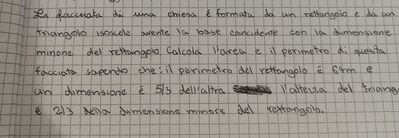 La facciata di una chiesa è formata da un rettangolo e da un
triangolo isoscele avente la base coincidente con la dimensione
minone del rettangolo Calcola l'area e il perimetro di questa
facciata sapendo che: il perimetro del rettangolo è 64m e
un dimensione è 5/3 dell'altra l'altezza del triang
è 2/3 della dimensione minore del rettangolo.